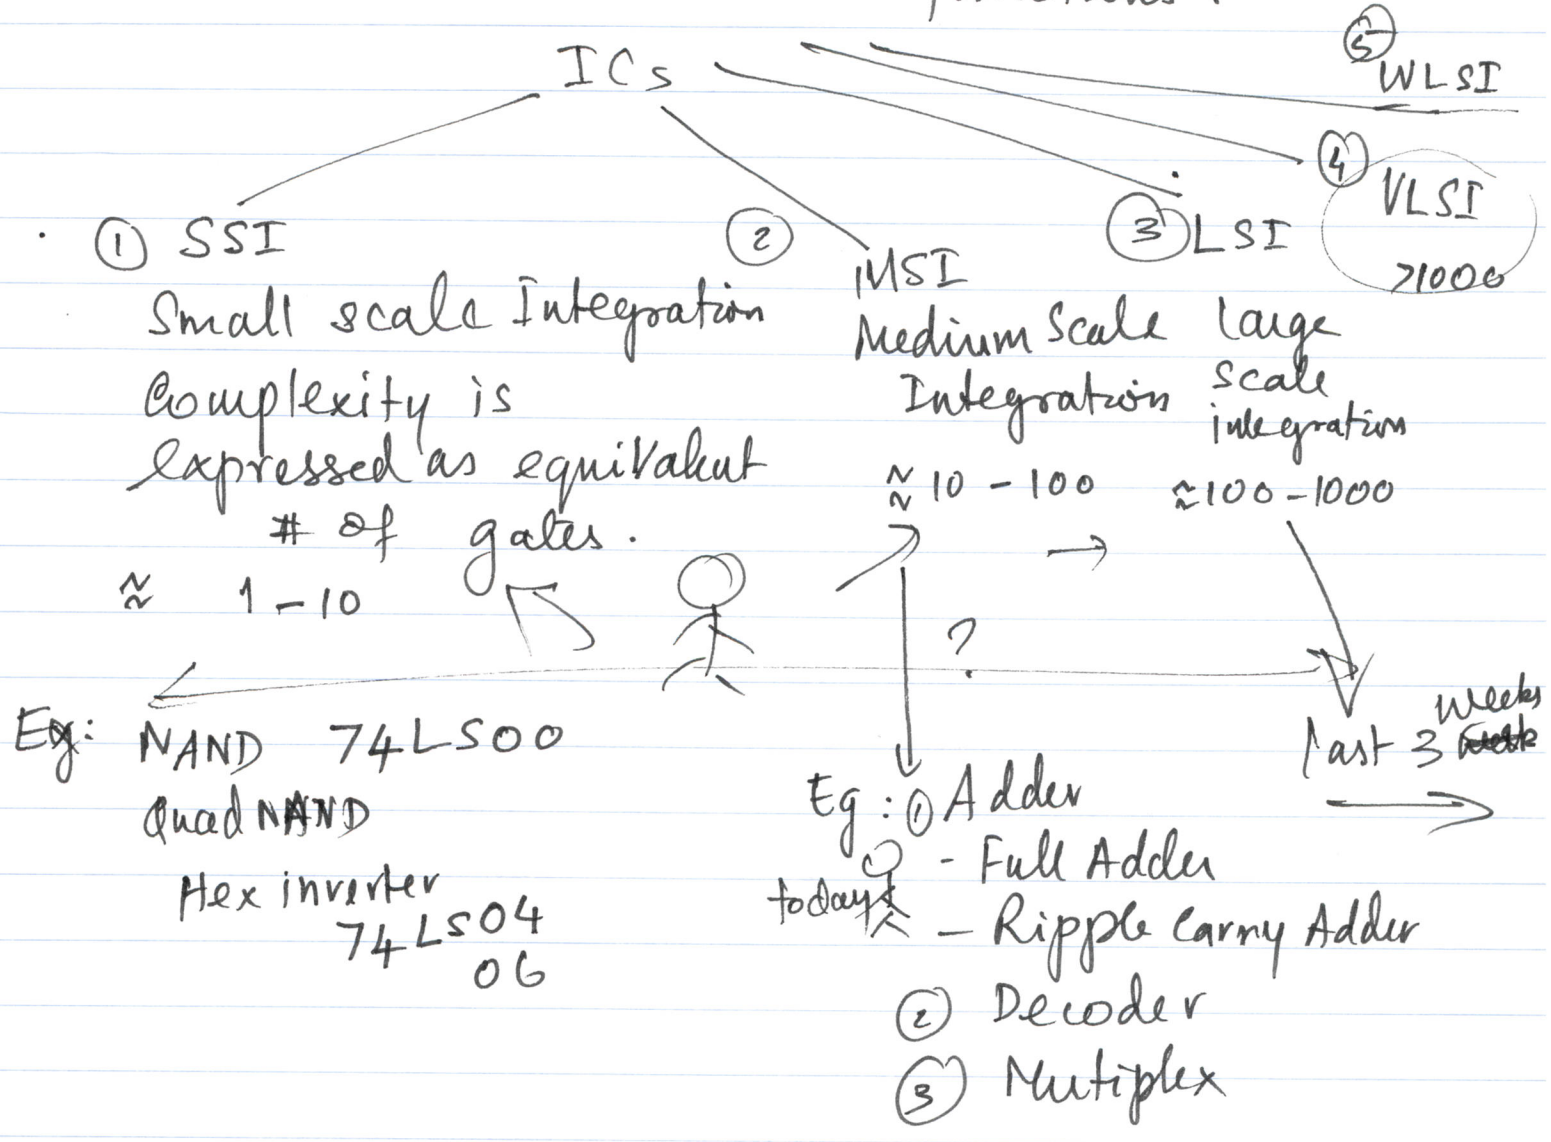 ICs
⑤ WLSI
④ VLSI
>1000
① SSI
Small scale Integration
Complexity is
expressed as equivalent
# of gates.
≈ 1-10
② MSI
Medium Scale
Integration
≈ 10 - 100
③ LSI
Large
scale
integration
≈ 100-1000
?
Eg: NAND 74LS00
Quad NAND
Hex inverter
74LS04
06
last 3 weeks
Eg: ① Adder
- Full Adder
today
- Ripple Carry Adder
② Decoder
③ Mutiplex